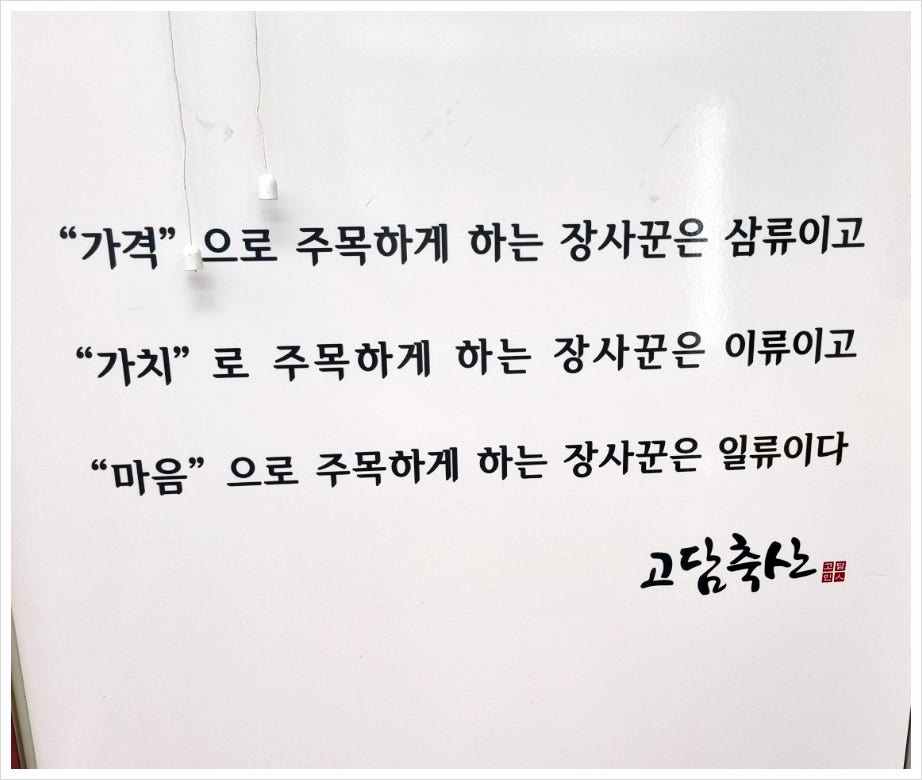 “가격” 으로 주목하게 하는 장사꾼은 삼류이고
“가치” 로 주목하게 하는 장사꾼은 이류이고
“마음” 으로 주목하게 하는 장사꾼은 일류이다
고담축산
고담
인스